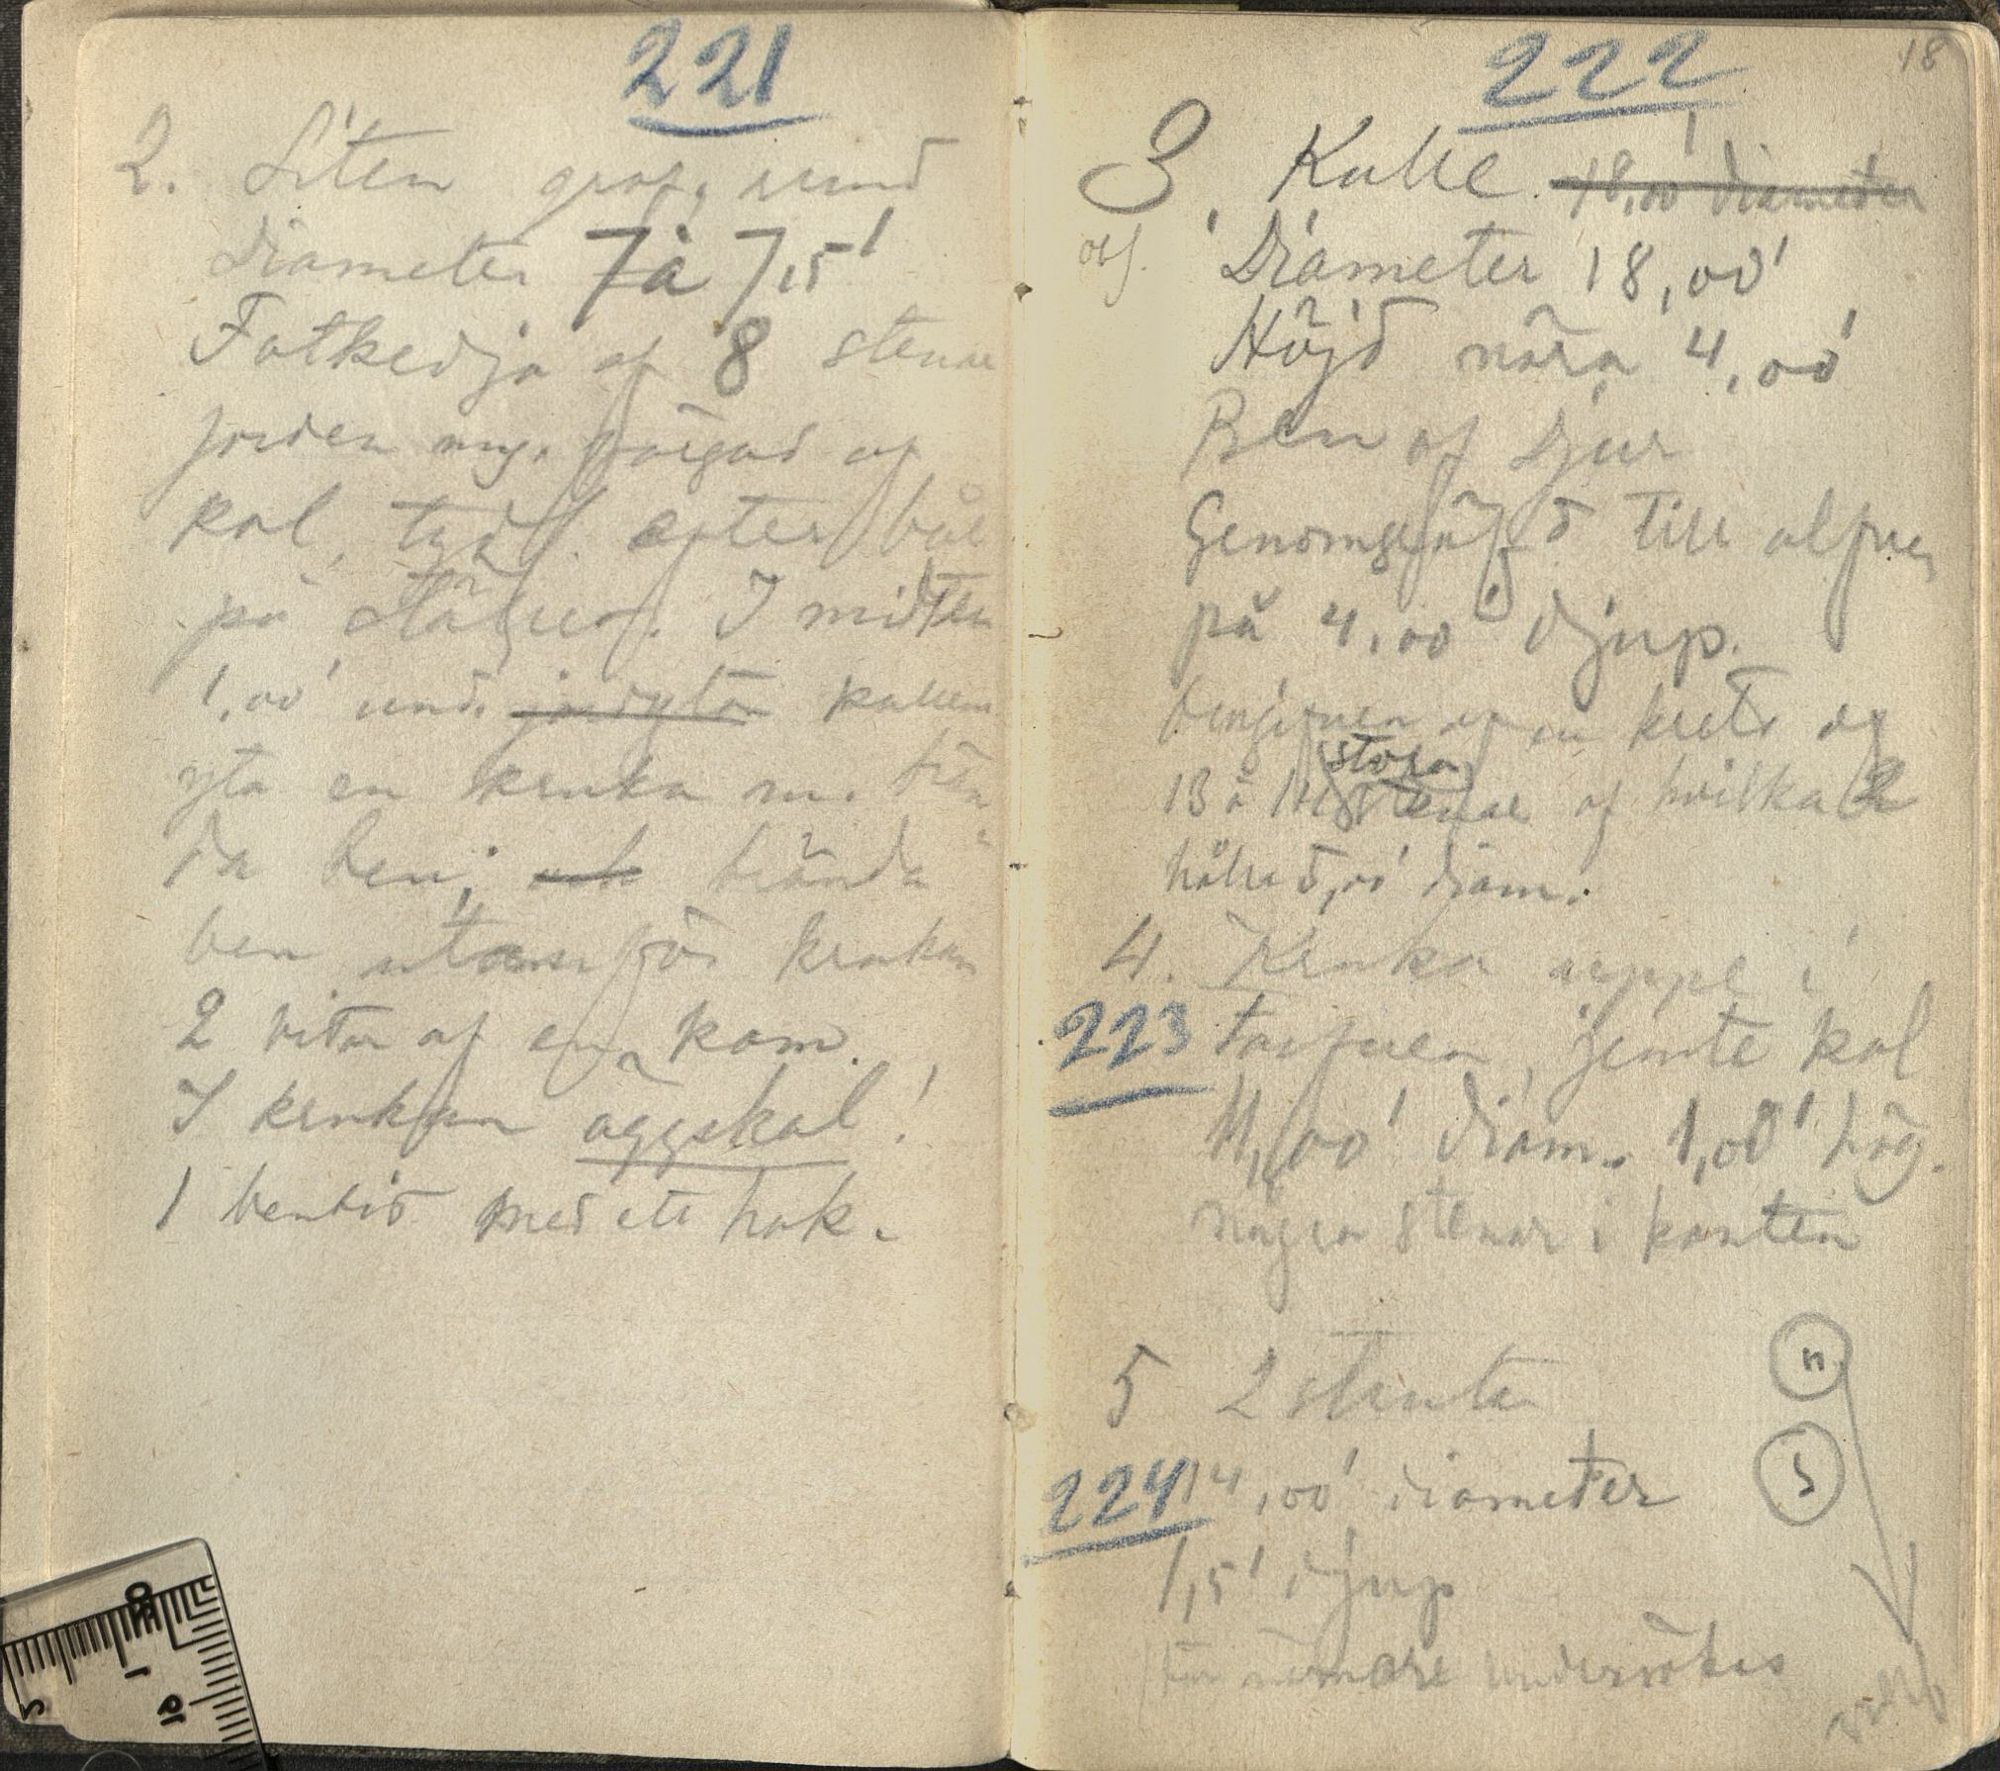 221
2. Liten graf, rund
Diameter 7 à 7,5'
Fotkedja af 8 stenar
jorden my. färgad af
kol, tydl. efter bål
på stället. I midten
1,00' und. jordytan kullens
yta en kruka m. brän
da ben; och brända
ben utanför krukan
2 bitar af en kam.
I krukan äggskal!
1 benbit med ett hak.
18
222
3. Kulle. 18,00' diameter
obs. Diameter 18,00'
Höjd nära 4,00'
Ben af djur
Genomgräfd till alfven
på 4,00' djup.
omgifven af en krets af
13 à 14 stora stenar af hvilka 2
hålla 5,00' diam.
4. Kruka uppe i
223 torfven, jemte kol
11,00' diam. 1,00' hög.
några stenar i kanten
5 2
n
s
224 14,00' diameter
1,5' djup
bör närmare undersökas